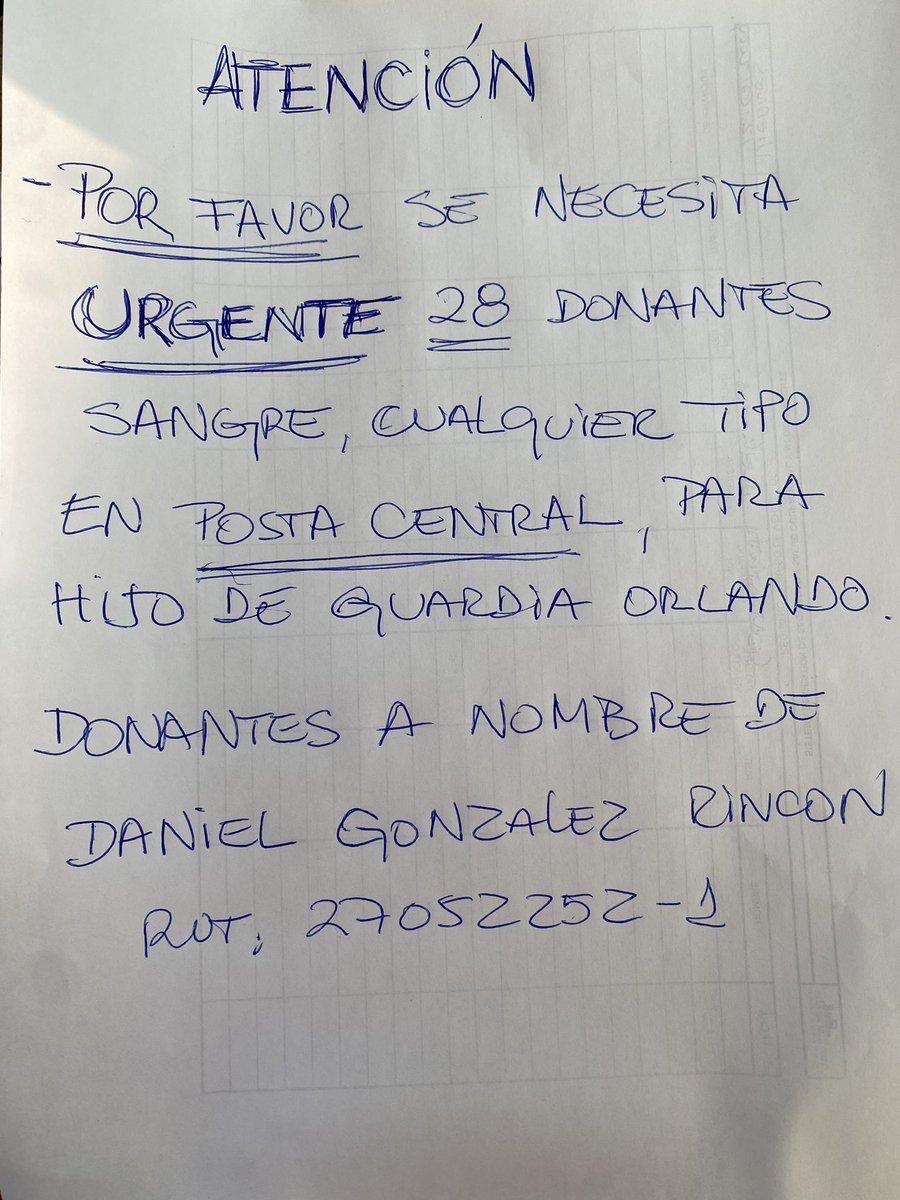 ATENCIÓN
- POR FAVOR SE NECESITA
URGENTE 28 DONANTES
SANGRE, CUALQUIER TIPO
EN POSTA CENTRAL, PARA
HIJO DE GUARDIA ORLANDO.
DONANTES A NOMBRE DE
DANIEL GONZALEZ RINCON
RUT. 27052252-1